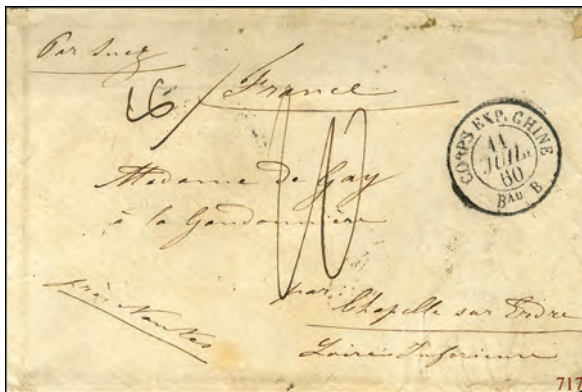 Par Suez
France
10
CORPS EXP. CHINE
11
JUIL.
60
Bau B
Madame de Gay
à la Gandonnière
près Nantes
par
Chapelle sur Erdre
Loire Inférieure